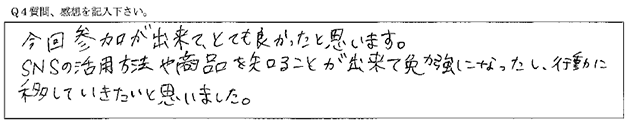 Q4質問、感想を記入下さい。
今回参加が出来て、とても良かったと思います。
SNSの活用方法や商品を知ることが出来て勉強になったし、行動に
移していきたいと思いました。